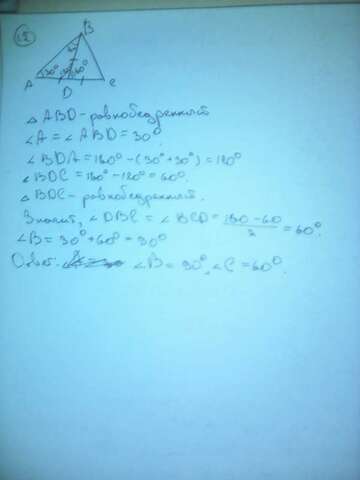 12
B
A 30° 120° 60° C
D
△ ABD - равнобедренный
∠A = ∠ABD = 30°.
∠BDA = 180° - (30° + 30°) = 120°
∠BDC = 180° - 120° = 60°.
△ BDC - равнобедренный.
Значит, ∠DBC = ∠BCD = 180 - 60 / 2 = 60°.
∠B = 30° + 60° = 90°
Ответ: ∠B = 90°, ∠C = 60°.